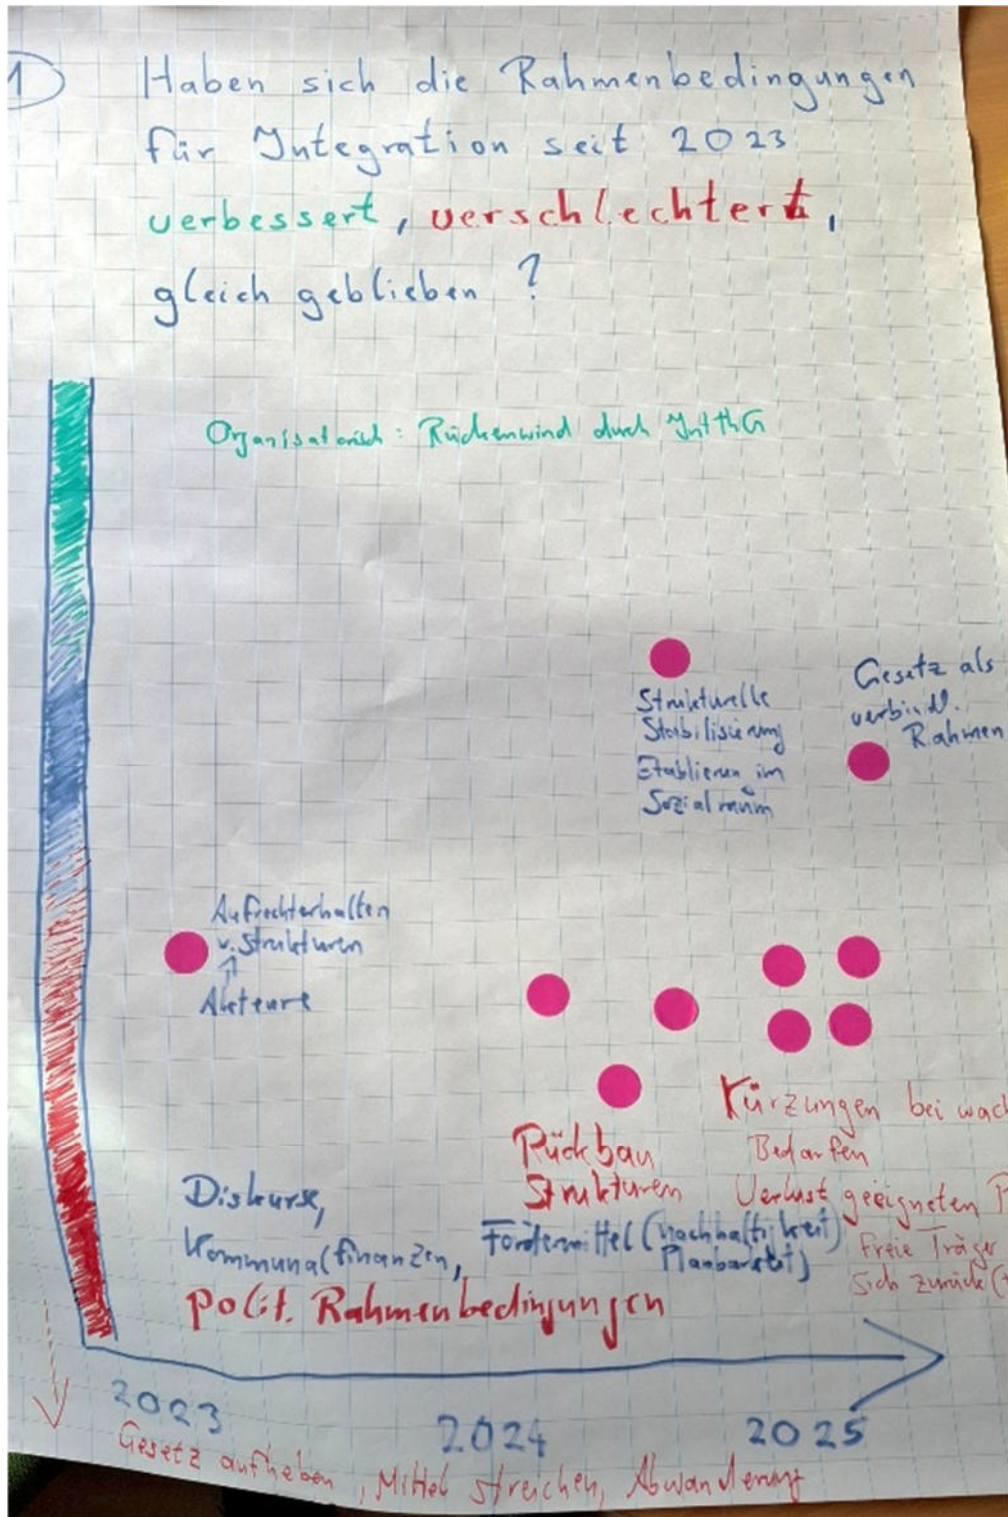 1
Haben sich die Rahmenbedingungen
für Integration seit 2023
verbessert, verschlechtert,
gleich geblieben ?
Organisatorisch : Rückenwind durch IntthG
Strukturelle
Stabilisierung
Etablieren im
Sozialraum
Gesetz als
verbindl.
Rahmen
Aufrechterhalten
v. Strukturen
Akteure
Rückbau
Strukturen
Kürzungen bei wach
Bedarfen
Verlust geeigneten P
Freie Träger
sich zurück
Diskurse,
Kommunalfinanzen, Fördermittel (Nachhaltigkeit
Planbarkeit)
polit. Rahmenbedingungen
2023
2024
2025
Gesetz aufheben, Mittel streichen, Abwanderung